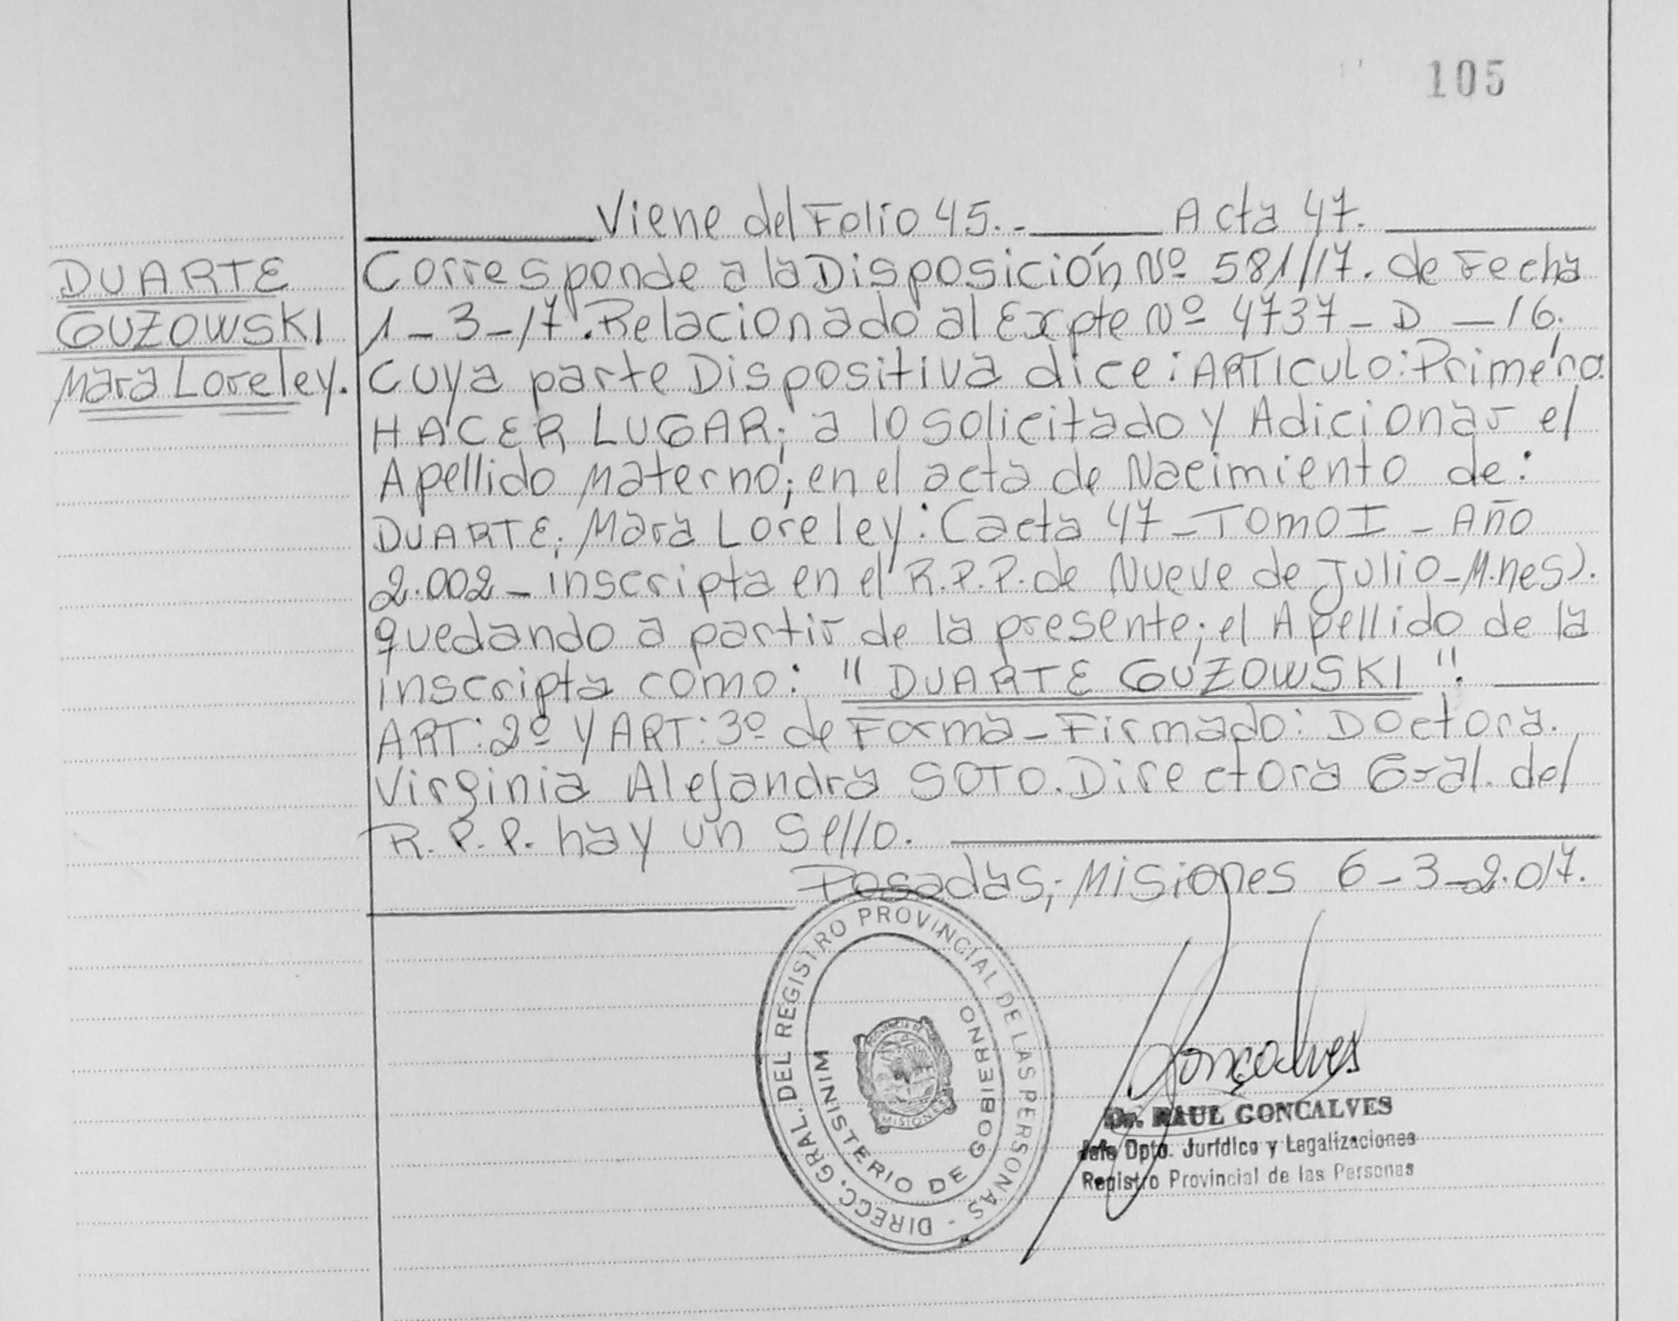 105
Viene del Folio 45.- Acta 47.
DUARTE
GUZOWSKI
Mara Loreley.
Corresponde a la Disposición Nº 581/17. de Fecha
1-3-17. Relacionado al Expte Nº 4737-D-16.
Cuya parte Dispositiva dice: ARTICULO: Primero.
HACER LUGAR; a lo solicitado y Adicionar el
Apellido Materno; en el acta de Nacimiento de:
DUARTE; Mara Loreley: (acta 47-TOMO I-Año
2.002-inscripta en el R.P.P. de Nueve de Julio-M.nes).
quedando a partir de la presente; el Apellido de la
inscripta como: "DUARTE GUZOWSKI".
ART: 2º y ART: 3º de Forma-Firmado: Doctora.
Virginia Alejandra SOTO. Directora Gral. del
R.P.P. hay un Sello.
Posadas; Misiones 6-3-2.017.
DIRECC. GRAL. DEL REGISTRO PROVINCIAL DE LAS PERSONAS -
MINISTERIO DE GOBIERNO
PROVINCIA DE
MISIONES
Goncalves
Dr. RAUL GONCALVES
Jefe Dpto. Jurídico y Legalizaciones
Registro Provincial de las Personas